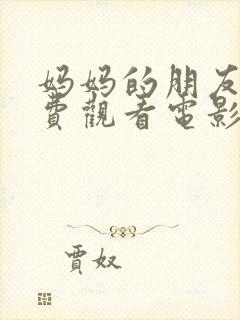 妈妈的朋友
費觀看電影
賈奴